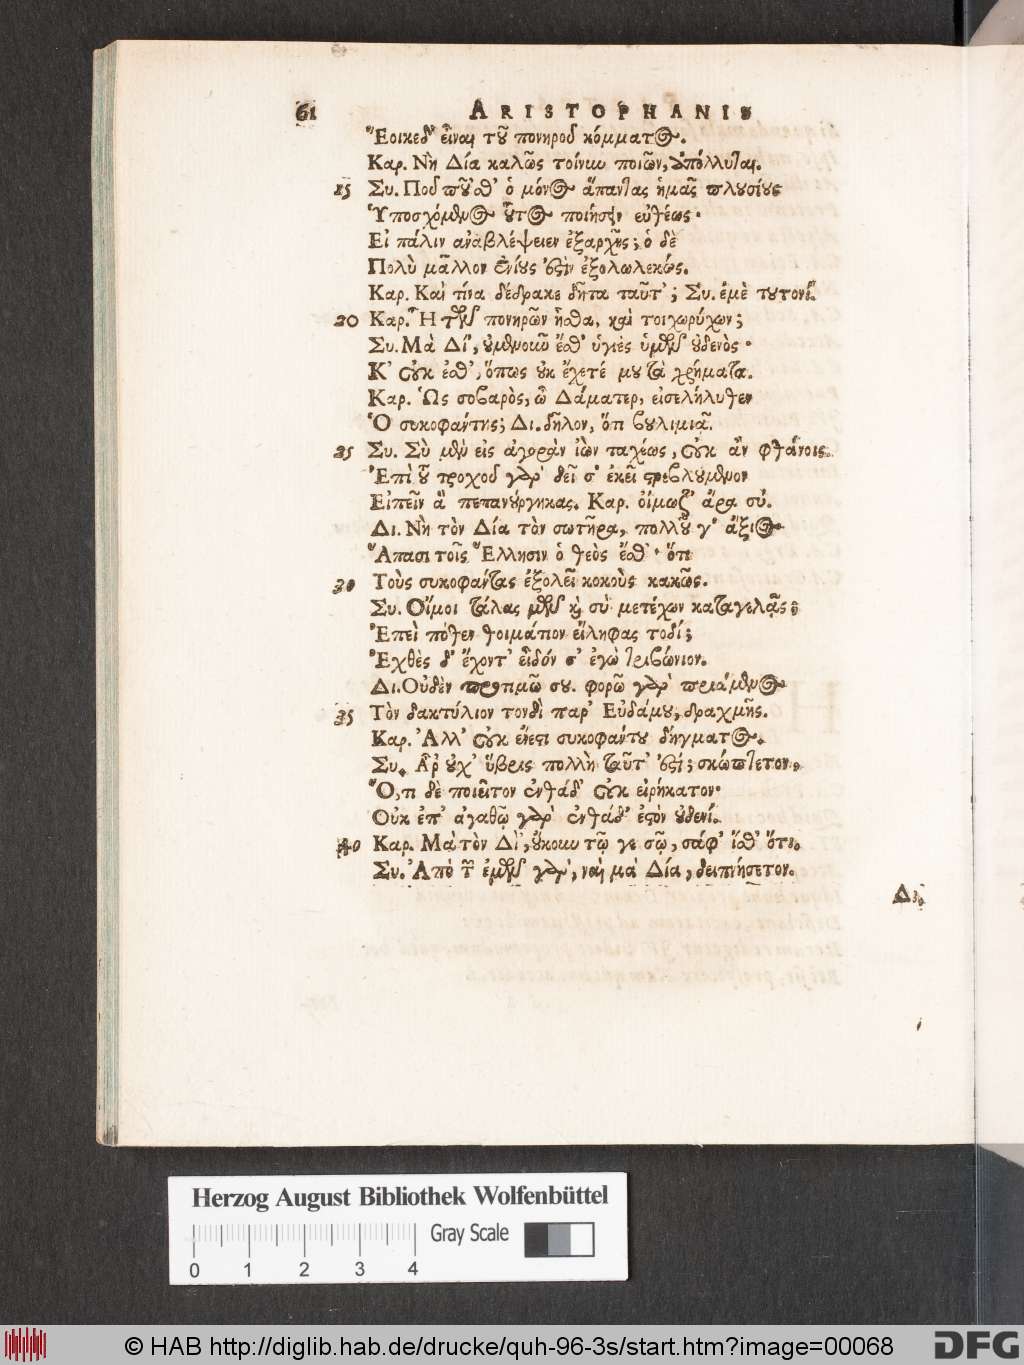 61 ARISTOPHANIS
Ἔοικεδ' εἶναι τοῦ πονηροῦ κόμματος.
Καρ. Νὴ Δία καλῶς τοίνυν ποιῶν, ἀπόλλυται.
15 Συ. Ποῦ ποῦ'σθ' ὁ μόνος ἅπαντας ἡμᾶς πλουσίους
Ὑποσχόμενος οὗτος ποιήσειν εὐθέως·
Εἰ πάλιν ἀναβλέψειεν ἐξαρχῆς; ὁ δὲ
Πολὺ μᾶλλον ἐνίους ἐστὶν ἐξολωλεκώς.
Καρ. Καὶ τίνα δέδρακε δῆτα ταῦτ'; Συ. ἐμὲ τουτονί.
20 Καρ. Ἦ τῶν πονηρῶν ἦσθα, καὶ τοιχωρύχων;
Συ. Μὰ Δί', οὐμενουν ἔσθ' ὑγιὲς ὑμῶν οὐδενὸς·
Κ' οὐκ ἐσθ', ὅπως οὐκ ἔχετέ μου τὰ χρήματα.
Καρ. Ὡς σοβαρὸς, ὦ Δάματερ, εἰσελήλυθεν
Ὁ συκοφάντης; Δι. δῆλον, ὅτι βουλιμιᾷ.
25 Συ. Σὺ μὲν εἰς ἀγορὰν ἰὼν ταχέως, οὐκ ἂν φθάνοις.
Ἐπὶ τοῦ τροχοῦ γὰρ δεῖ σ' ἐκεῖ στρεβλούμενον
Εἰπεῖν ἃ πεπανούργηκας. Καρ. οἰμωξ' ἄρα σύ.
Δι. Νὴ τὸν Δία τὸν σωτῆρα, πολλοῦ γ' ἄξιος
Ἅπασι τοῖς Ἕλλησιν ὁ θεὸς ἔσθ'· ὅτι
30 Τοὺς συκοφάντας ἐξολεῖ κοκοὺς κακῶς.
Συ. Οἴμοι τάλας μῶν καὶ σὺ μετέχων καταγελᾷς;
Ἐπεὶ πόθεν θοιμάτιον εἴληφας τοδί;
Ἐχθὲς δ' ἔχοντ' εἶδόν σ' ἐγὼ τριβώνιον.
Δι. Οὐδὲν προτιμῶ σου. φορῶ γὰρ πριάμενος
35 Τὸν δακτύλιον τονδὶ παρ' Εὐδάμου, δραχμῆς.
Καρ. Ἀλλ' οὐκ ἔνεστι συκοφάντου δήγματος.
Συ. Ἆρ' οὐχ' ὕβρις πολλὴ ταῦτ' ἐστί; σκώπτετον.
Ὅ,τι δὲ ποιεῖτον ἐνθάδ' οὐκ εἰρήκατον·
Οὐκ ἐπ' ἀγαθῷ γὰρ ἐνθάδ' ἐστὸν οὐδενί.
40 Καρ. Μὰ τὸν Δί', οὔκουν τῷ γε σῷ, σάφ' ἴσθ' ὅτι.
Συ. Ἀπὸ τῶν ἐμῶν γὰρ, ναὶ μὰ Δία, δειπνήσετον.
Δι.
Herzog August Bibliothek Wolfenbüttel
Gray Scale
0 1 2 3 4
© HAB http://diglib.hab.de/drucke/quh-96-3s/start.htm?image=00068
DFG